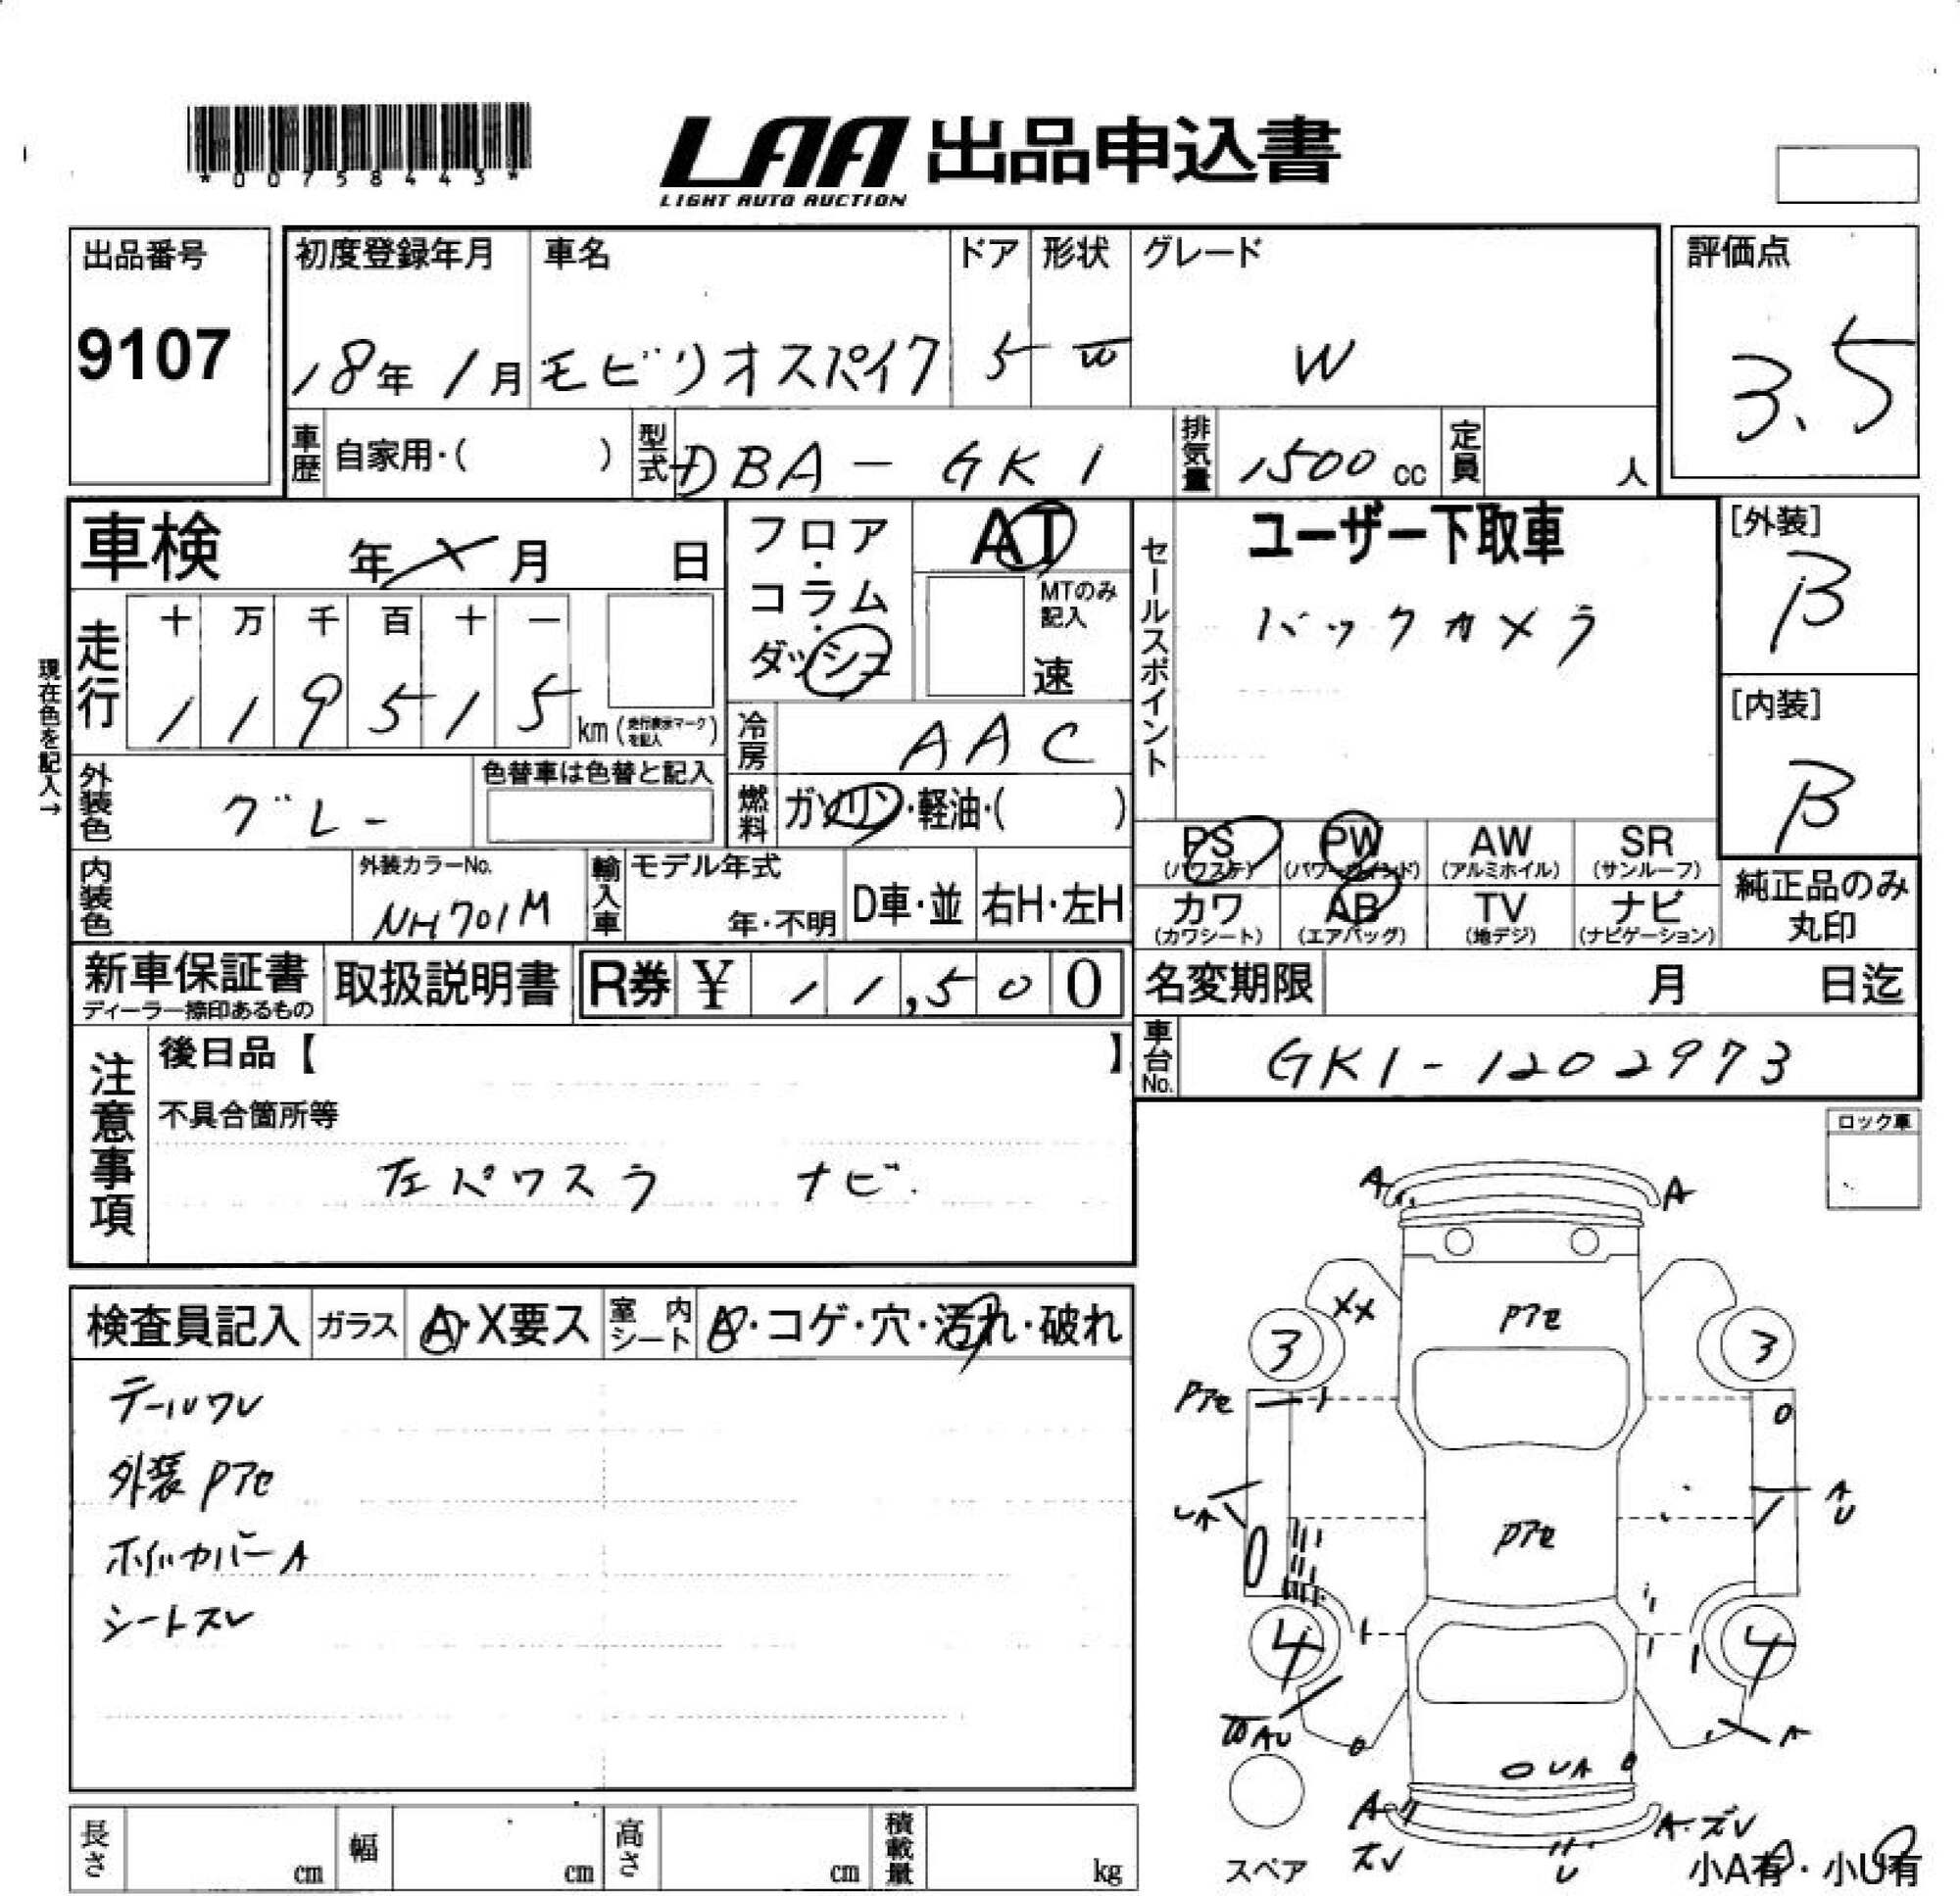 *00758443*
LAA 出品申込書
LIGHT AUTO AUCTION
出品番号
9107
初度登録年月
18年 1月
車名
モビリオスパイク
ドア
5
形状
W
グレード
W
評価点
3.5
車歴 自家用・( )
型式 DBA-GK1
排気量 1500 cc
定員 人
車検 年 × 月 日
現在色を記入→
走行
十 万 千 百 十 一
1 1 9 5 1 5 km (走行表示マークを記入)
フロア・コラム・ダッシュ
AT
MTのみ記入
速
冷房 AAC
燃料 ガソリン・軽油・( )
セールスポイント
ユーザー下取車
バックカメラ
[外装]
B
[内装]
B
外装色 グレー
色替車は色替と記入
内装色
外装カラーNo.
NH701M
輸入車
モデル年式
年・不明
D車・並
右H・左H
PS (パワステ)
PW (パワーウインド)
AW (アルミホイル)
SR (サンルーフ)
カワ (カワシート)
AB (エアバッグ)
TV (地デジ)
ナビ (ナビゲーション)
純正品のみ丸印
新車保証書
ディーラー捺印あるもの
取扱説明書
R券 ¥ 11,500
名変期限 月 日迄
車台No. GK1-1202973
注意事項
後日品【 】
不具合箇所等
左パワスラ ナビ
ロック車
検査員記入
ガラス A・X要ス
室内シート A・コゲ・穴・汚れ・破れ
テールワレ
外装Pアセ
ホイルカバーA
シートスレ
A A
XX
Pアセ
3 3
Pアセ
UA
A
U
Pアセ
4 4
WAU
A
UA
A
ズレ
A・ズレ
U
スペア
小A有・小U有
長さ cm
幅 cm
高さ cm
積載量 kg